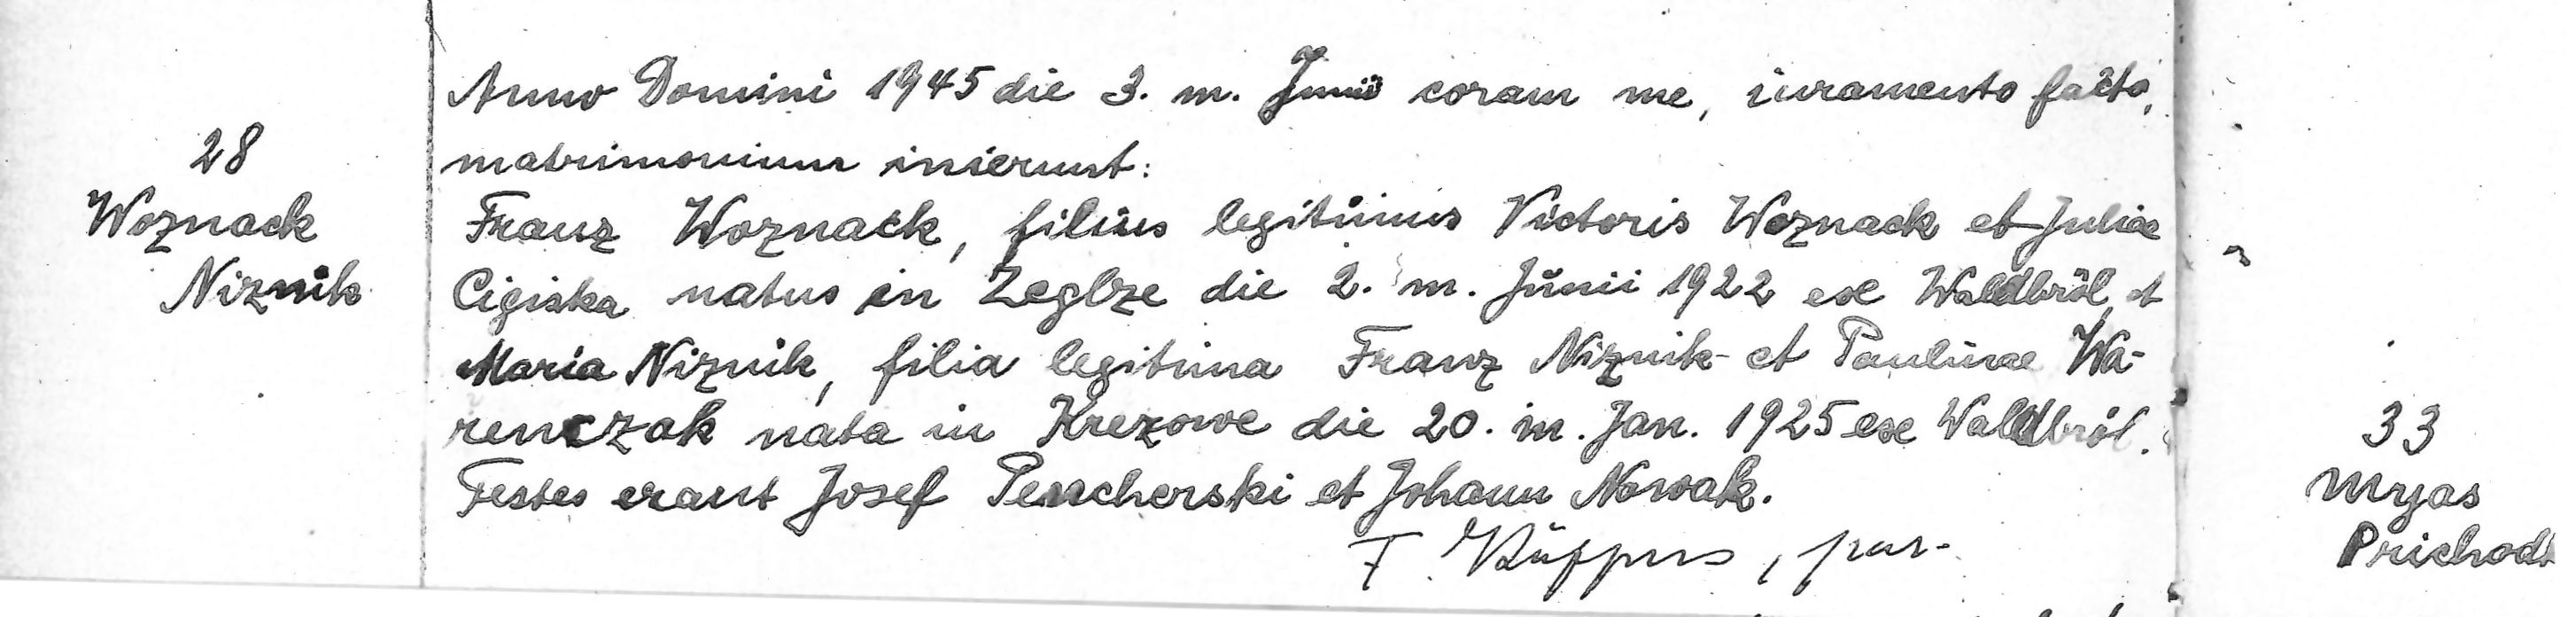 Anno Domini 1945 die 3. m. Junii coram me, iuramento facto,
matrimonium inierunt:
28
Woznack
Niznik
Franz Woznack, filius legitimus Victoris Woznack et Juliae
Cigiska natus in Zeglze die 2. m. Junii 1922 ex Waldbröl, et
Maria Niznik, filia legitima Franz Niznik et Paulinae Wa-
renczak nata in Krezowe die 20. m. Jan. 1925 ex Waldbröl.
Testes erant Josef Pencherski et Johann Nowak.
F. Küppers, par.
33
Myas
Prichod